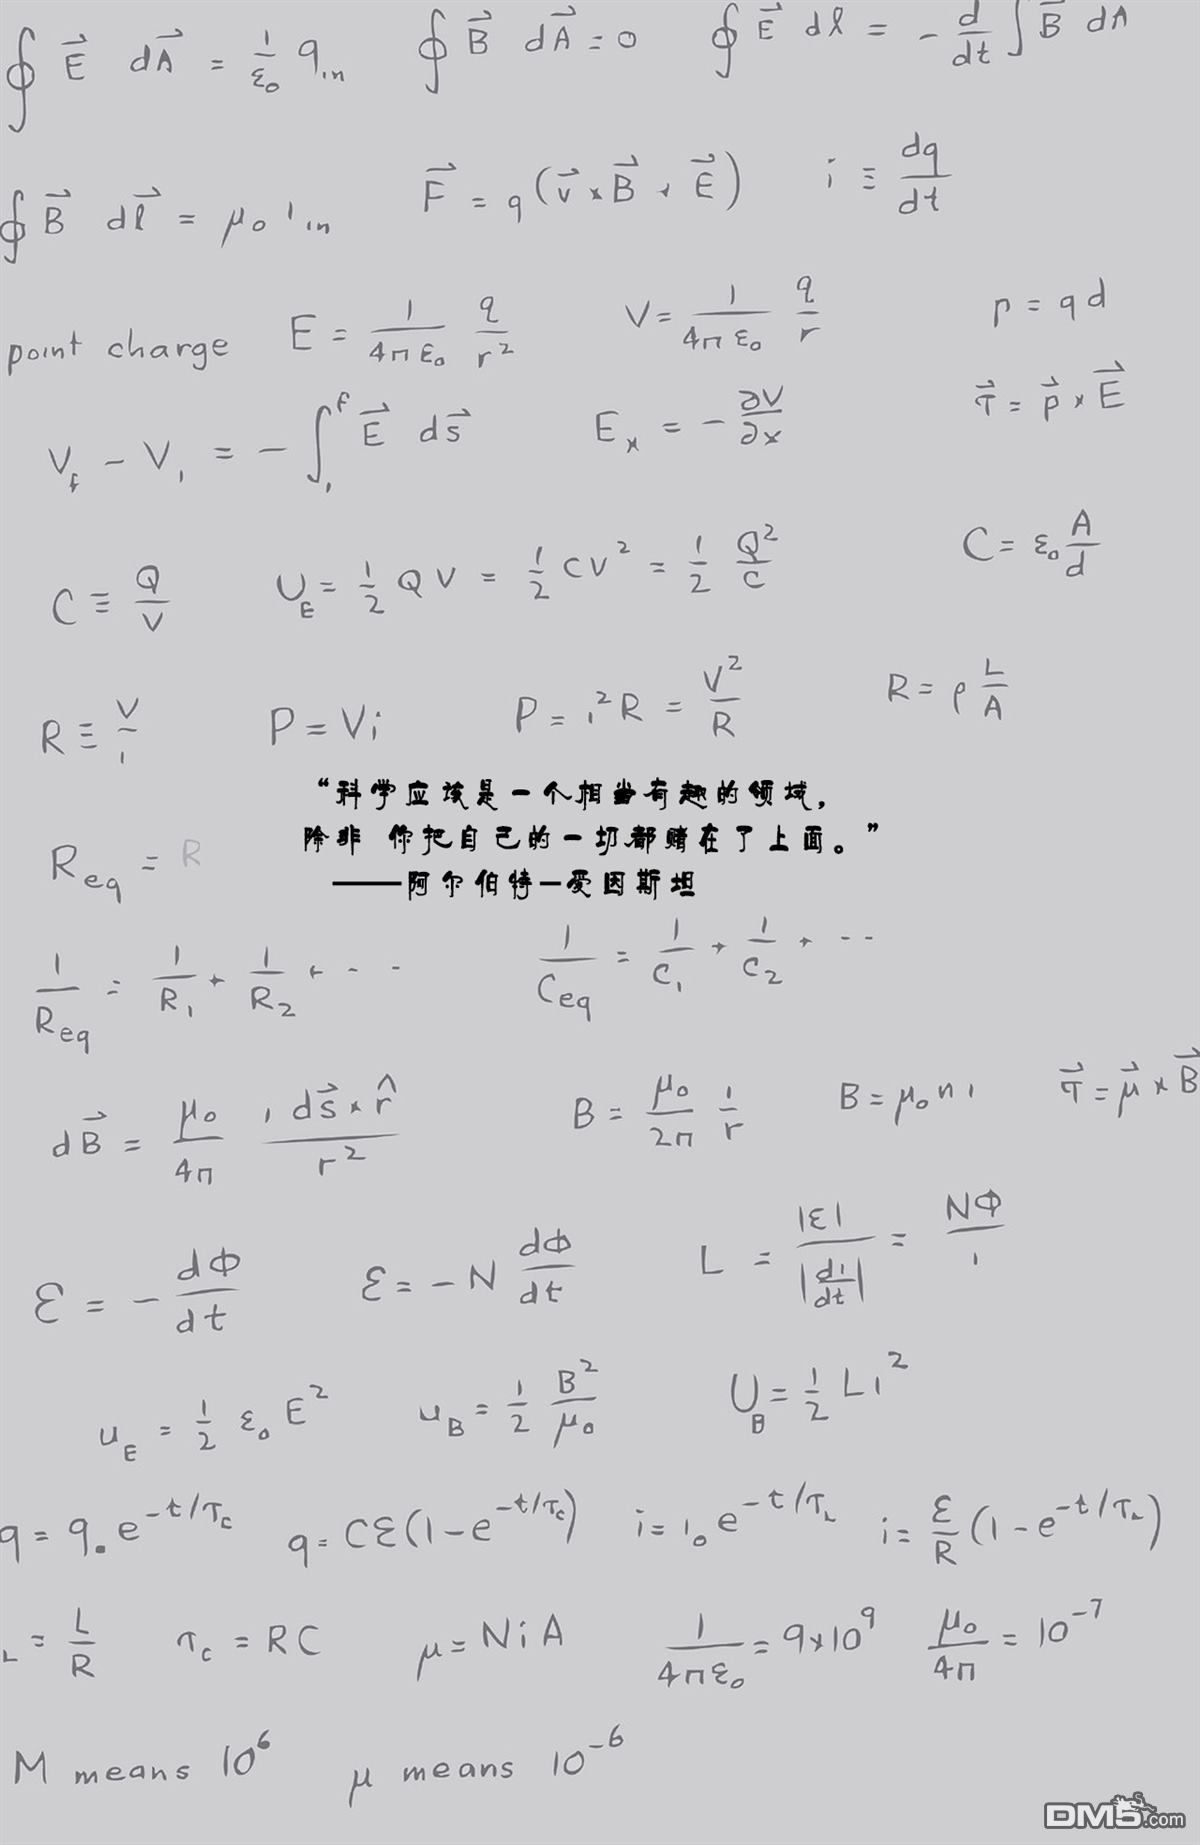 ∮ E⃗ dA⃗ = 1/ε₀ q_in   ∮ B⃗ dA⃗ = 0   ∮ E⃗ dl = - d/dt ∫ B⃗ dA
∮ B⃗ dl⃗ = μ₀ i_in   F⃗ = q (v⃗ × B⃗ + E⃗)   i ≡ dq/dt
point charge   E = 1/(4π ε₀) q/r²   V = 1/(4π ε₀) q/r   p = qd
V_f - V_i = - ∫_i^f E⃗ ds⃗   E_x = - ∂V/∂x   τ⃗ = p⃗ × E⃗
C ≡ Q/V   U_E = 1/2 QV = 1/2 CV² = 1/2 Q²/C   C = ε₀ A/d
R ≡ V/i   P = Vi   P = i²R = V²/R   R = ρ L/A
“科学应该是一个相当有趣的领域，
除非 你把自己的一切都赌在了上面。”
——阿尔伯特—爱因斯坦
R_eq = R
1/R_eq = 1/R₁ + 1/R₂ + ...   1/C_eq = 1/C₁ + 1/C₂ + ...
dB⃗ = μ₀/4π i ds⃗ × r̂/r²   B = μ₀/2π i/r   B = μ₀ n i   τ⃗ = μ⃗ × B⃗
ℰ = - dΦ/dt   ℰ = - N dΦ/dt   L = |ℰ|/|di/dt| = NΦ/i
u_E = 1/2 ε₀ E²   u_B = 1/2 B²/μ₀   U_B = 1/2 Li²
q = q₀ e^(-t/τ_C)   q = Cℰ(1 - e^(-t/τ_C))   i = i₀ e^(-t/τ_L)   i = ℰ/R (1 - e^(-t/τ_L))
L = L/R   τ_C = RC   μ = NiA   1/(4πε₀) = 9×10⁹   μ₀/4π = 10⁻⁷
M means 10⁶   μ means 10⁻⁶
DM5.com